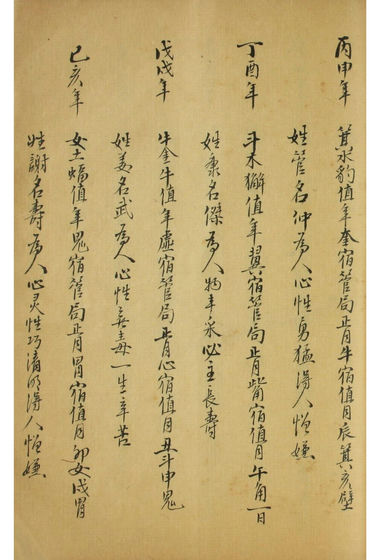 丙申年 箕水豹值年奎宿管局正月牛宿值月辰箕亥壁
姓管名仲为人心性勇猛得人憎嫌
丁酉年 斗木獬值年翼宿管局正月觜宿值月午角一日
姓康名傑为人物丰采必主長壽
戊戌年 牛金牛值年虚宿管局正月心宿值月丑斗申鬼
姓姜名武为人心性無毒一生辛苦
己亥年 女土蝠值年鬼宿管局正月胃宿值月卯女戌胃
姓謝名壽为人心灵性巧清明得人憎嫌